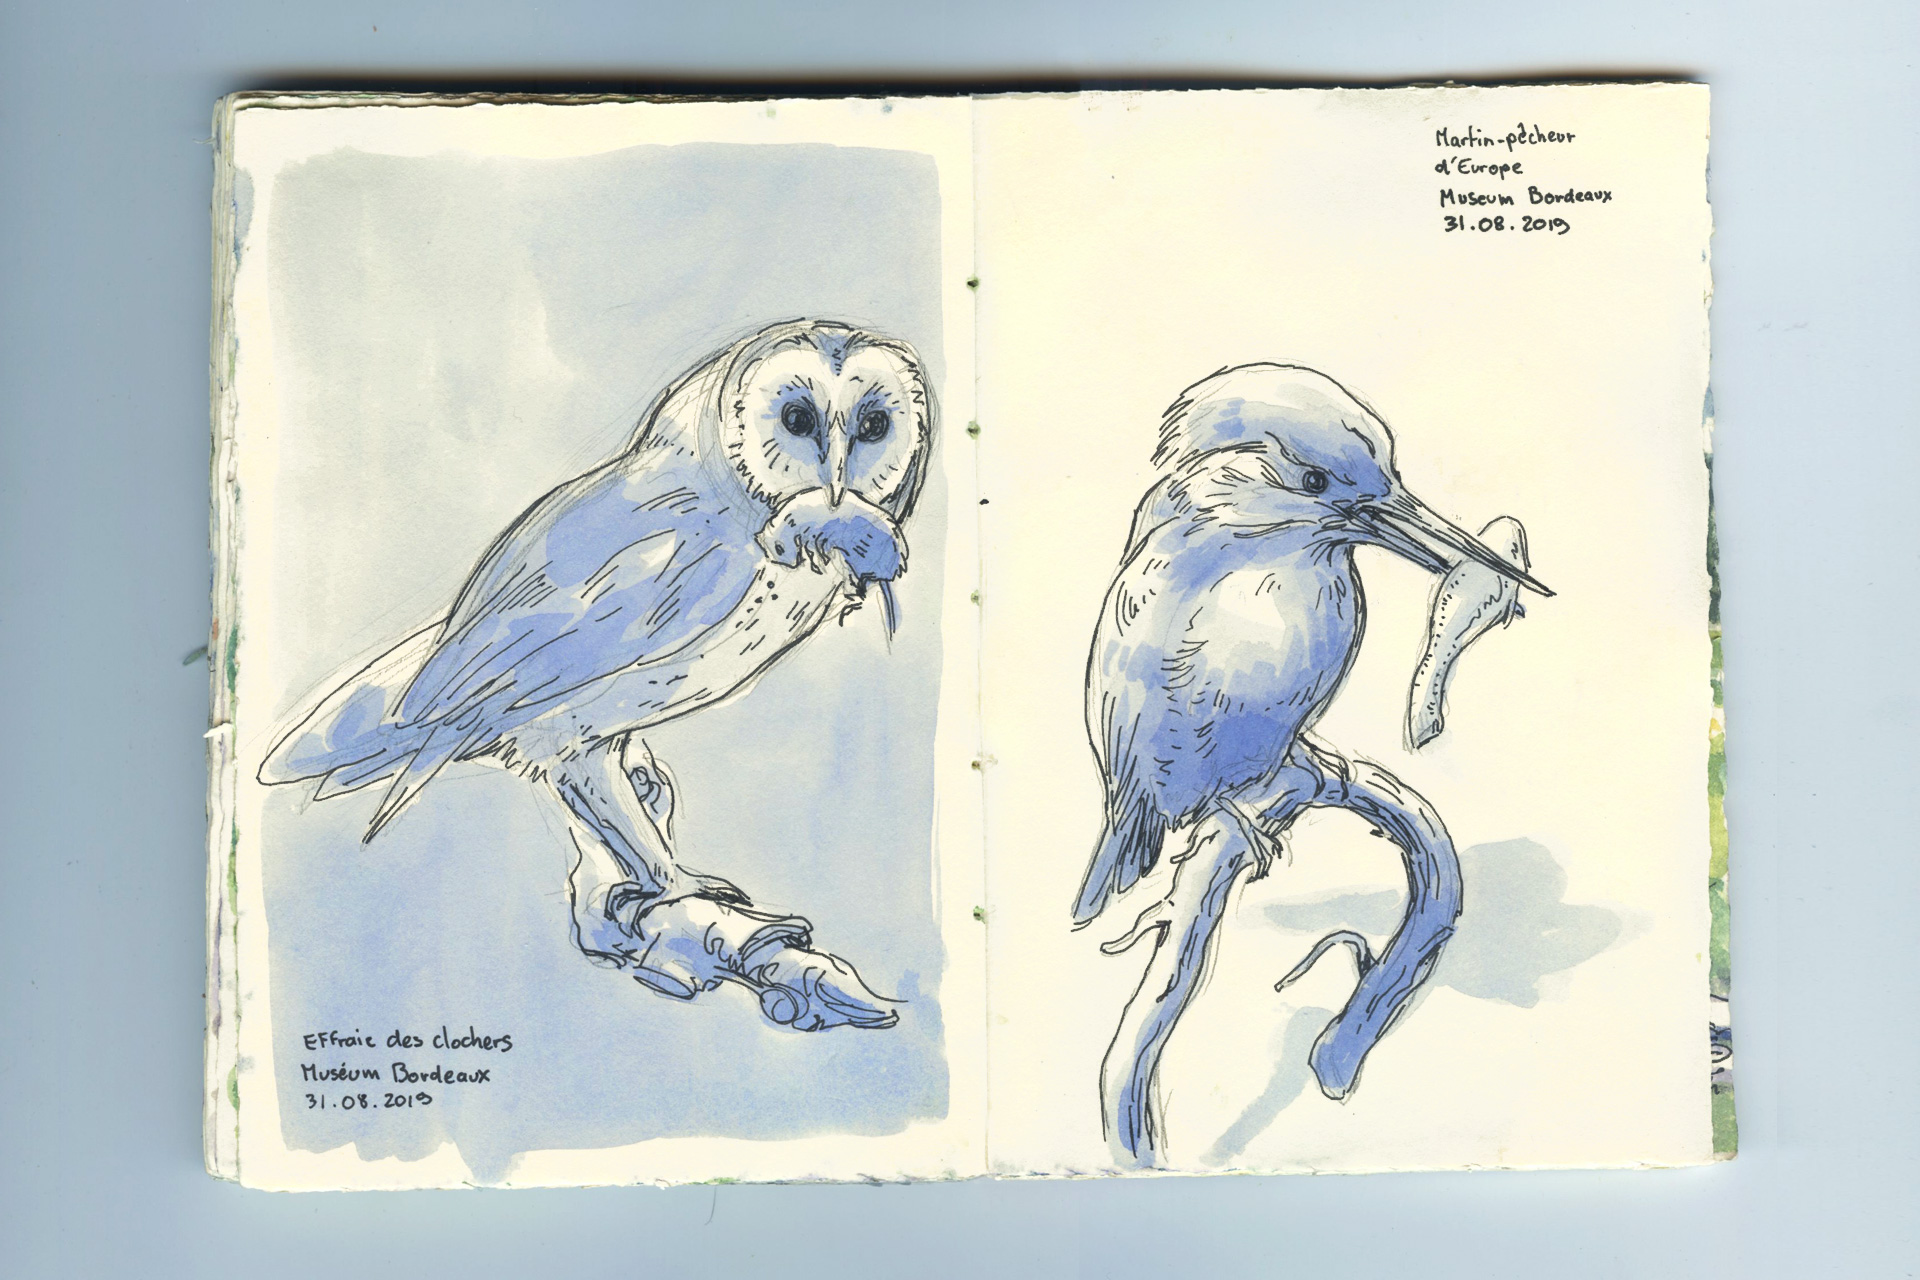 Effraie des clochers
Muséum Bordeaux
31.08.2019
Martin-pêcheur
d'Europe
Museum Bordeaux
31.08.2019